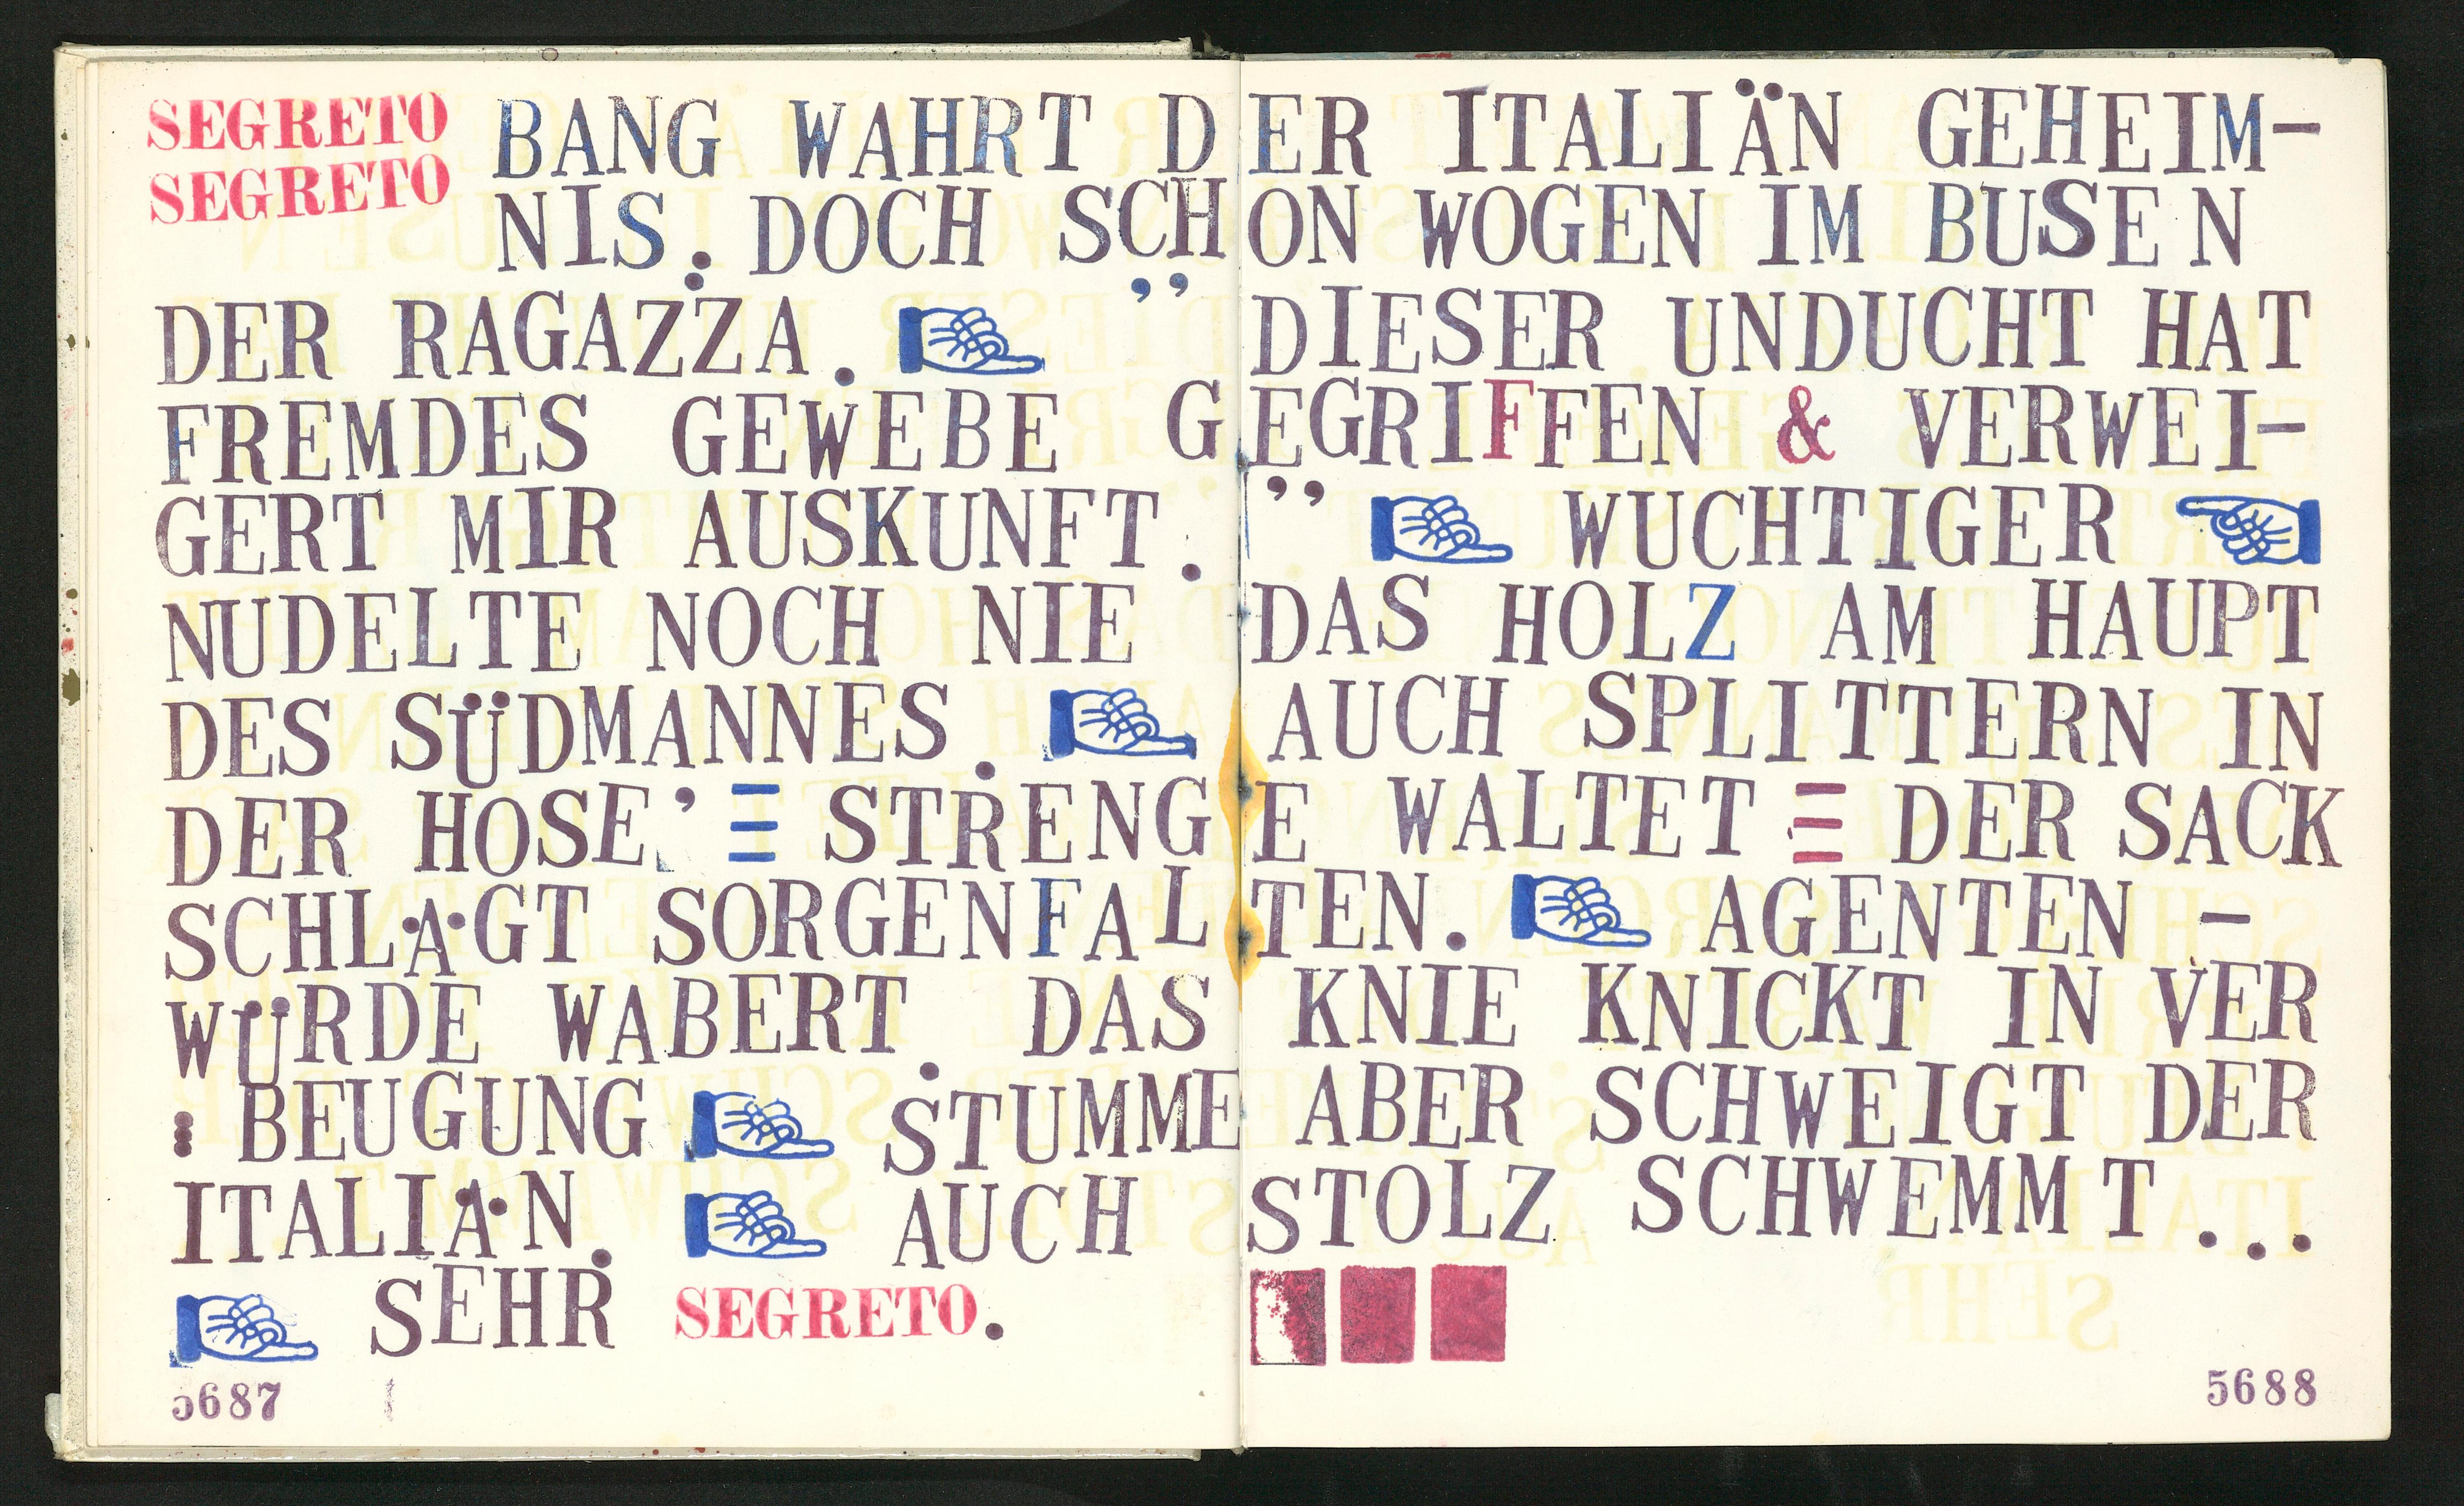 SEGRETO BANG WAHRT DER ITALIÄN GEHEIM-
SEGRETO NIS. DOCH SCHON WOGEN IM BUSEN
DER RAGAZZA. ’’DIESER UNDUCHT HAT
FREMDES GEWEBE GEGRIFFEN & VERWEI-
GERT MIR AUSKUNFT.’’ WUCHTIGER
NUDELTE NOCH NIE DAS HOLZ AM HAUPT
DES SÜDMANNES. AUCH SPLITTERN IN
DER HOSE’ STRENGE WALTET DER SACK
SCHLÄGT SORGENFALTEN. AGENTEN-
WÜRDE WABERT. DAS KNIE KNICKT IN VER
:BEUGUNG STUMME ABER SCHWEIGT DER
ITALIÄN. AUCH STOLZ SCHWEMMT...
SEHR SEGRETO.
5687 5688